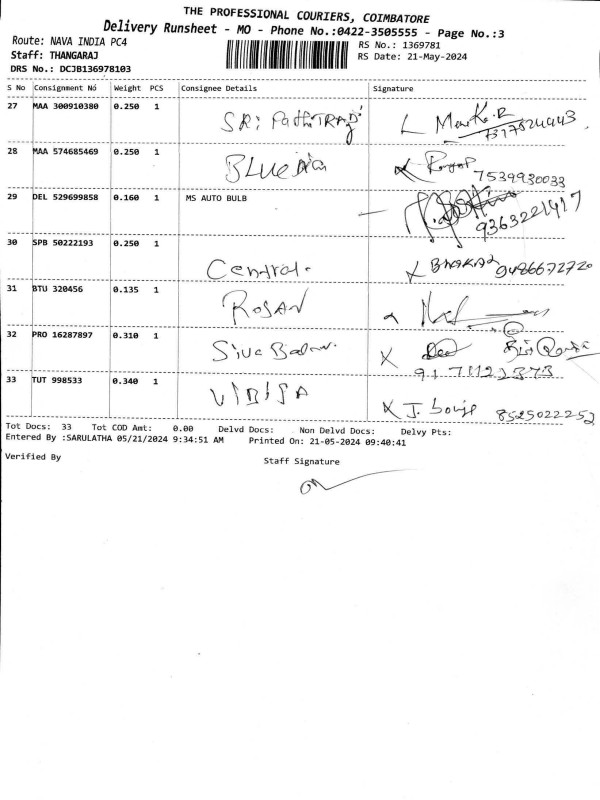 THE PROFESSIONAL COURIERS, COIMBATORE
Delivery Runsheet - MO - Phone No.:0422-3505555 - Page No.:3
Route: NAVA INDIA PC4
RS No.: 1369781
Staff: THANGARAJ
RS Date: 21-May-2024
DRS No.: DCJB136978103
S No Consignment No Weight PCS Consignee Details Signature
27 MAA 300910380 0.250 1 SRi
28 MAA 574685469 0.250 1 BLUE 7539930033
29 DEL 529699858 0.160 1 MS AUTO BULB 9363221417
30 SPB 50222193 0.250 1 Central. 9486672720
31 BTU 320456 0.135 1 ROSAN
32 PRO 16287897 0.310 1 Siva
33 TUT 998533 0.340 1 J. 8525022252
Tot Docs: 33 Tot COD Amt: 0.00 Delvd Docs: Non Delvd Docs: Delvy Pts:
Entered By :SARULATHA 05/21/2024 9:34:51 AM Printed On: 21-05-2024 09:40:41
Verified By
Staff Signature